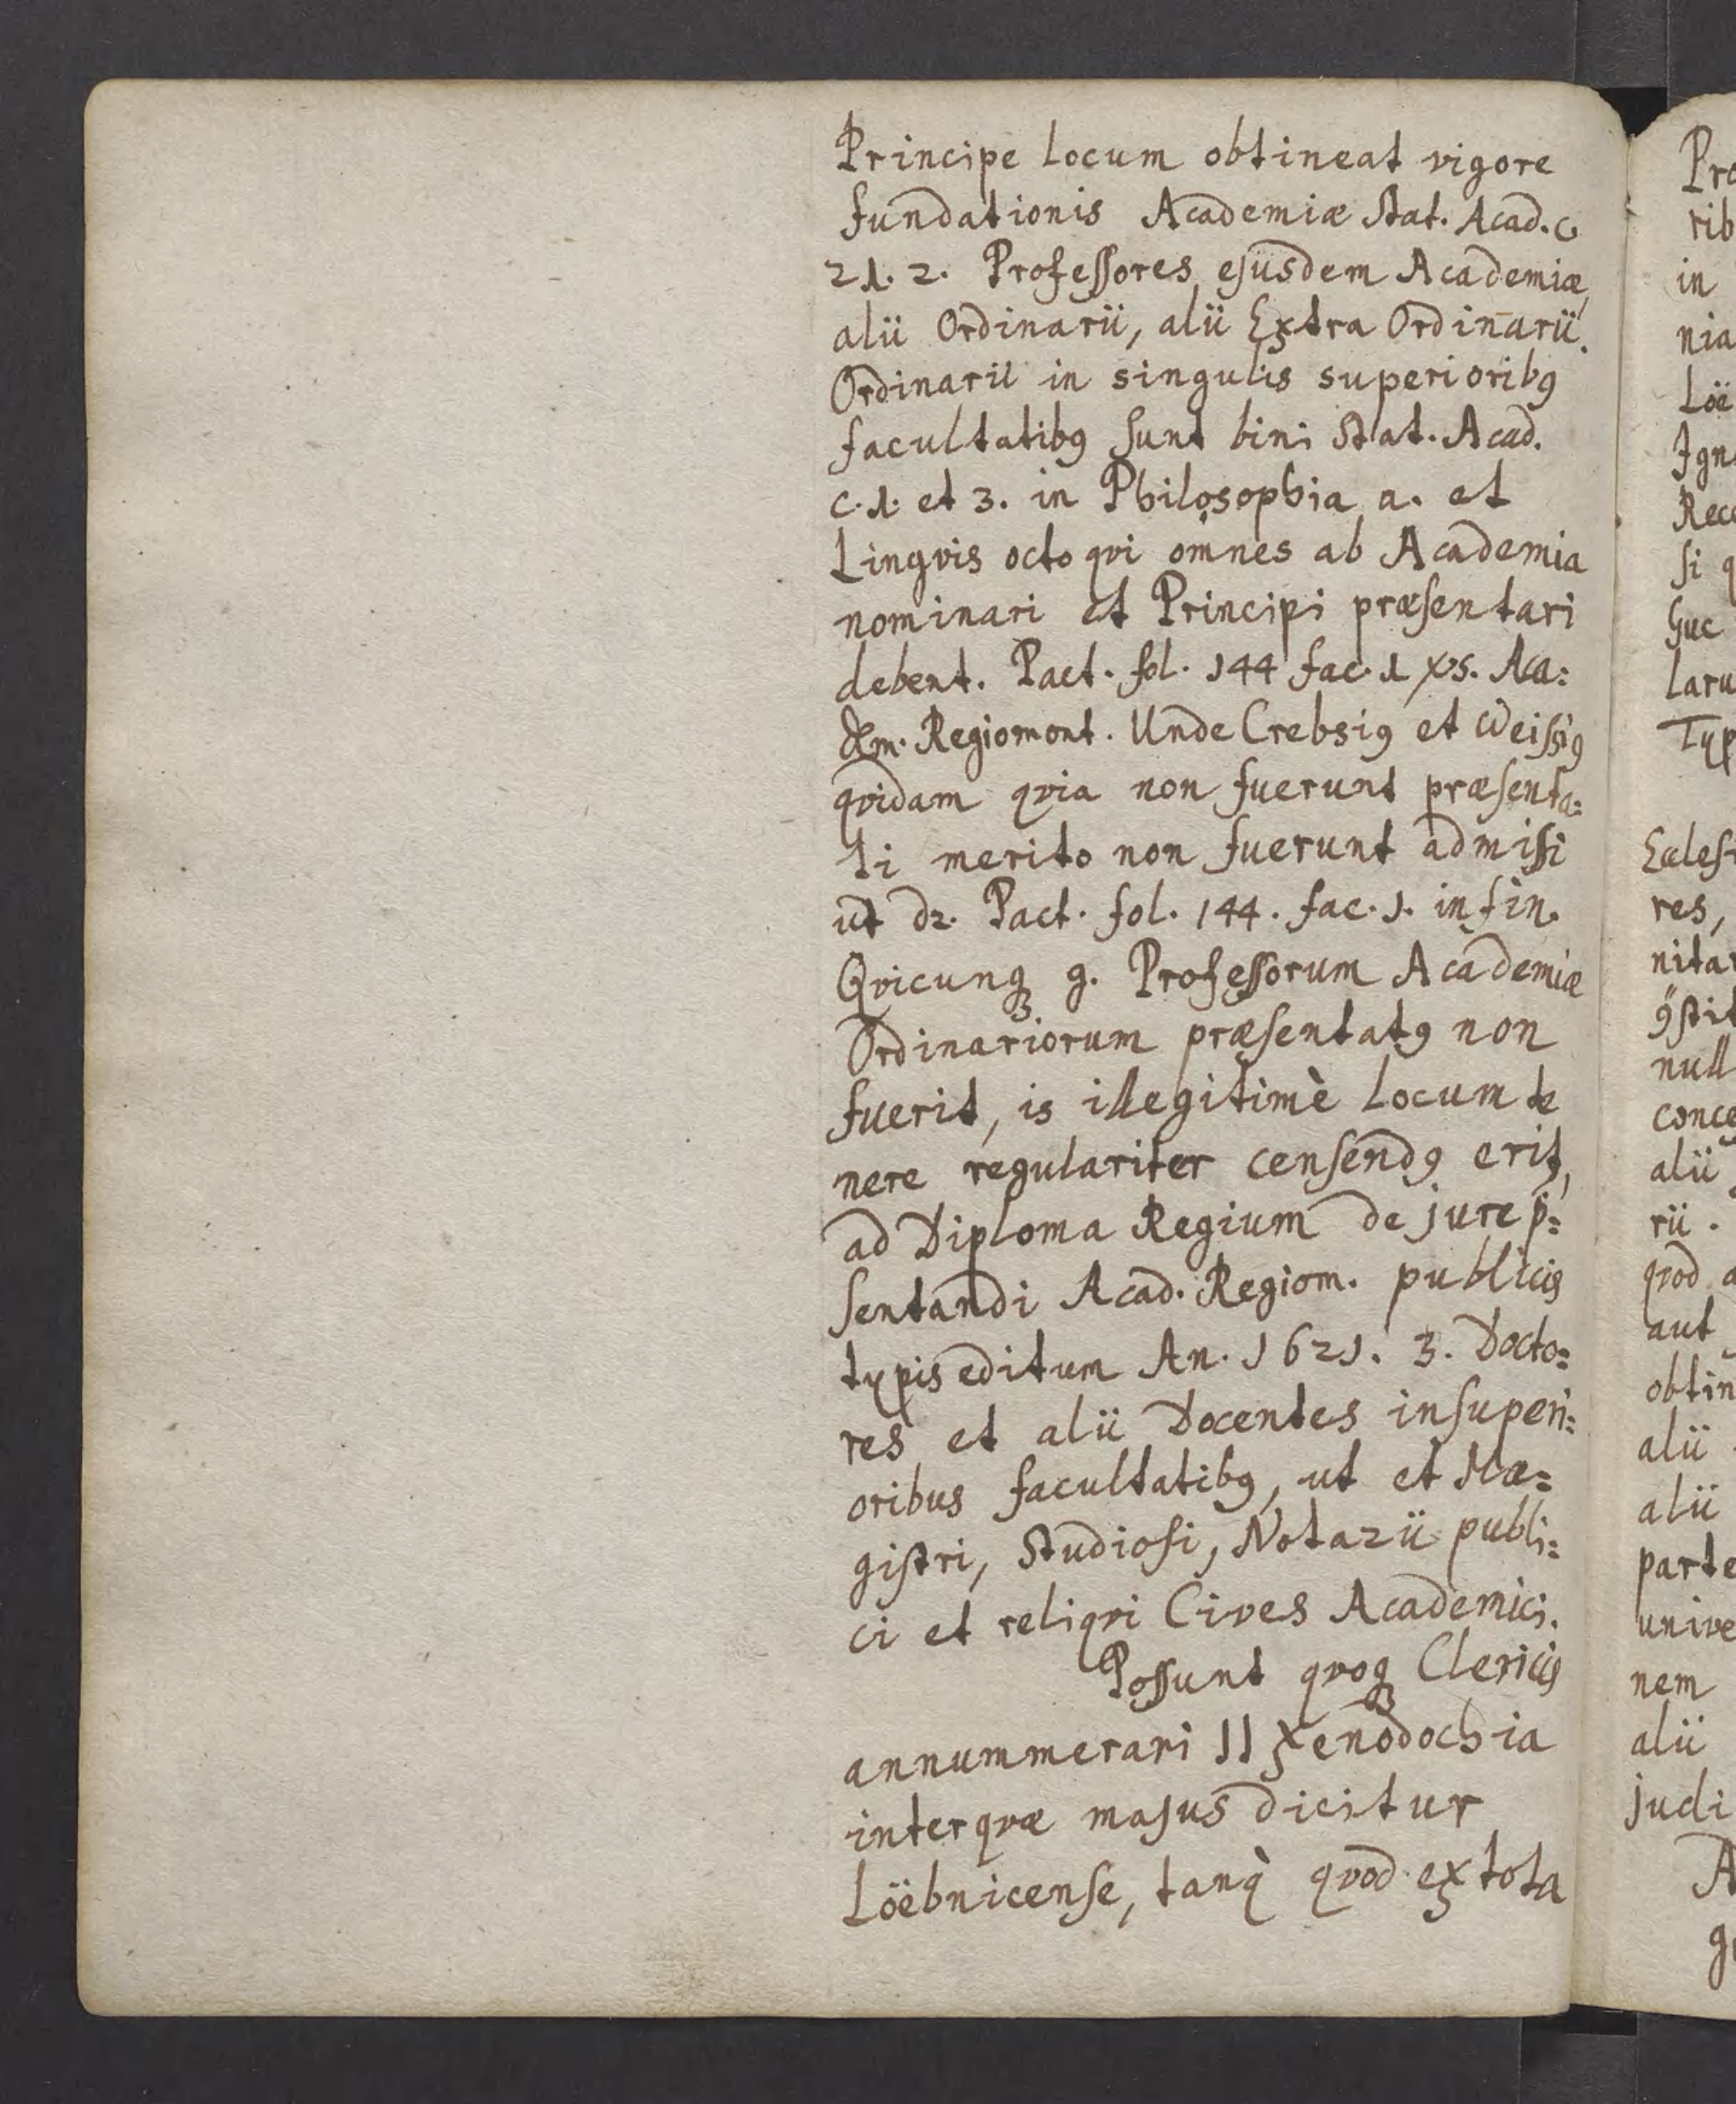 Principe Locum obtineat vigore
fundationis Academiæ Stat. Acad. c.
21. 2. Professores ejusdem Academiæ
alii Ordinarii, alii Extra Ordinarii.
Ordinarii in singulis superioribꝰ
facultatibꝰ sunt bini Stat. Acad.
c. 1. et 3. in Philosophia a. et
Lingvis octo qvi omnes ab Academia
nominari et Principi præsentari
debent. Pact. fol. 144 fac. 1 xs. Aca=
dem. Regiomont. Unde Crebsiꝰ et Weissiꝰ
qvidam qvia non fuerunt præsenta=
ti merito non fuerunt admissi
ut dr. Pact. fol. 144. fac. 1. in fin.
Qvicunqꝫ g. Professorum Academiæ
Ordinariorum præsentatꝰ non
fuerit, is illegitimè Locum te
nere regulariter censendꝰ erit,
ad Diploma Regium de jure p̄=
sentandi Acad. Regiom. publicis
typis editum An. 1621. 3. Docto=
res et alii Docentes in superi=
oribus facultatibꝰ, ut et Ma=
gistri, Studiosi, Notarii publi=
ci et reliqvi Cives Academici.
Possunt qvoqꝫ Clericis
annummerari 11 Xenodochia
inter qvæ majus dicitur
Löebnicense, tanq̀ qvod ex tota
Pro
rib
in
nia
Löe
Ign
Rece
si q
Guc
laru
Typ
Eccles
res,
nitar
ꝯstit
null
conce
alii
rii.
qvod a
aut
obtin
alii
alii
parte
unive
nem
alii
judi
A